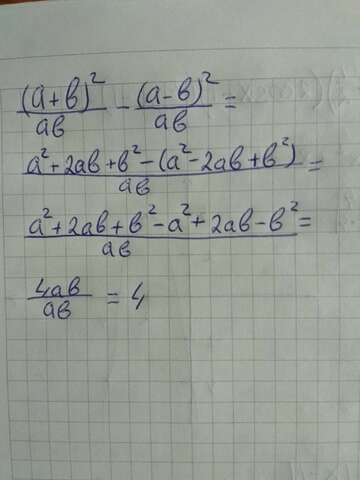 (a+b)²/ab - (a-b)²/ab =
a²+2ab+b²-(a²-2ab+b²)/ab =
a²+2ab+b²-a²+2ab-b²/ab =
4ab/ab = 4